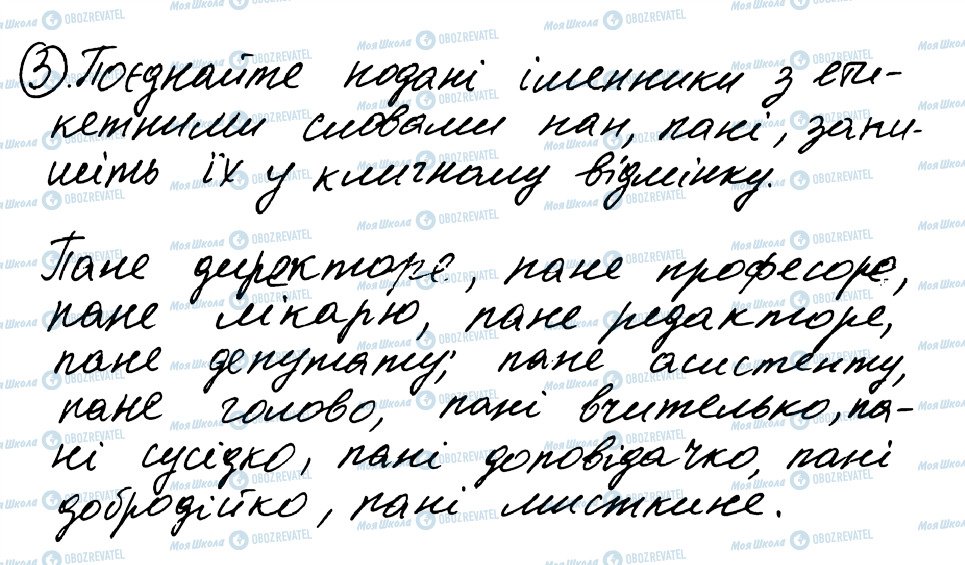 3. Поєднайте подані іменники з ети-
кетними словами пан, пані, запи-
шіть їх у кличному відмінку.
Пане директоре, пане професоре,
пане лікарю, пане редакторе,
пане депутату; пане асистенту,
пане голово, пані вчителько, па-
ні сусідко, пані доповідачко, пані
добродійко, пані мисткине.